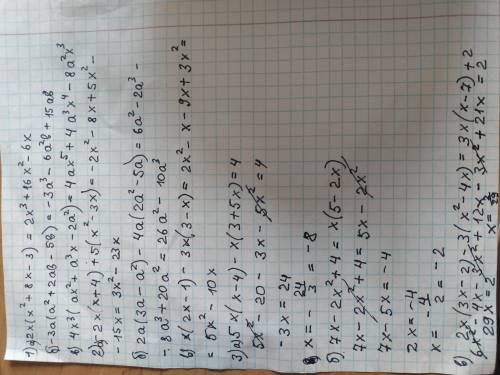 1) а) 2x(x² + 8x - 3) = 2x³ + 16x² - 6x
б) -3a(a² + 2ab - 5b) = -3a³ - 6a²b + 15ab
в) 4x³(ax² + a³x - 2a²) = 4ax⁵ + 4a³x⁴ - 8a²x³
2) а) -2x(x+4) + 5(x² - 3x) = -2x² - 8x + 5x² -
- 15x = 3x² - 23x
б) 2a(3a - a²) - 4a(2a² - 5a) = 6a² - 2a³ -
- 8a³ + 20a² = 26a² - 10a³
в) x(2x - 1) - 3x(3 - x) = 2x² - x - 9x + 3x² =
= 5x² - 10x
3) а) 5x(x - 4) - x(3 + 5x) = 4
5x² - 20 - 3x - 5x² = 4
-3x = 24
x = - 24/3 = -8
б) 7x - 2x² + 4 = x(5 - 2x)
7x - 2x² + 4 = 5x - 2x²
7x - 5x = -4
2x = -4
x = -4/2 = -2
в) 2x(3x - 2) - 3(x² - 4x) = 3x(x - 7) + 2
6x² - 4x - 3x² + 12x - 3x² + 21x = 2
29x = 2
x = 2/29